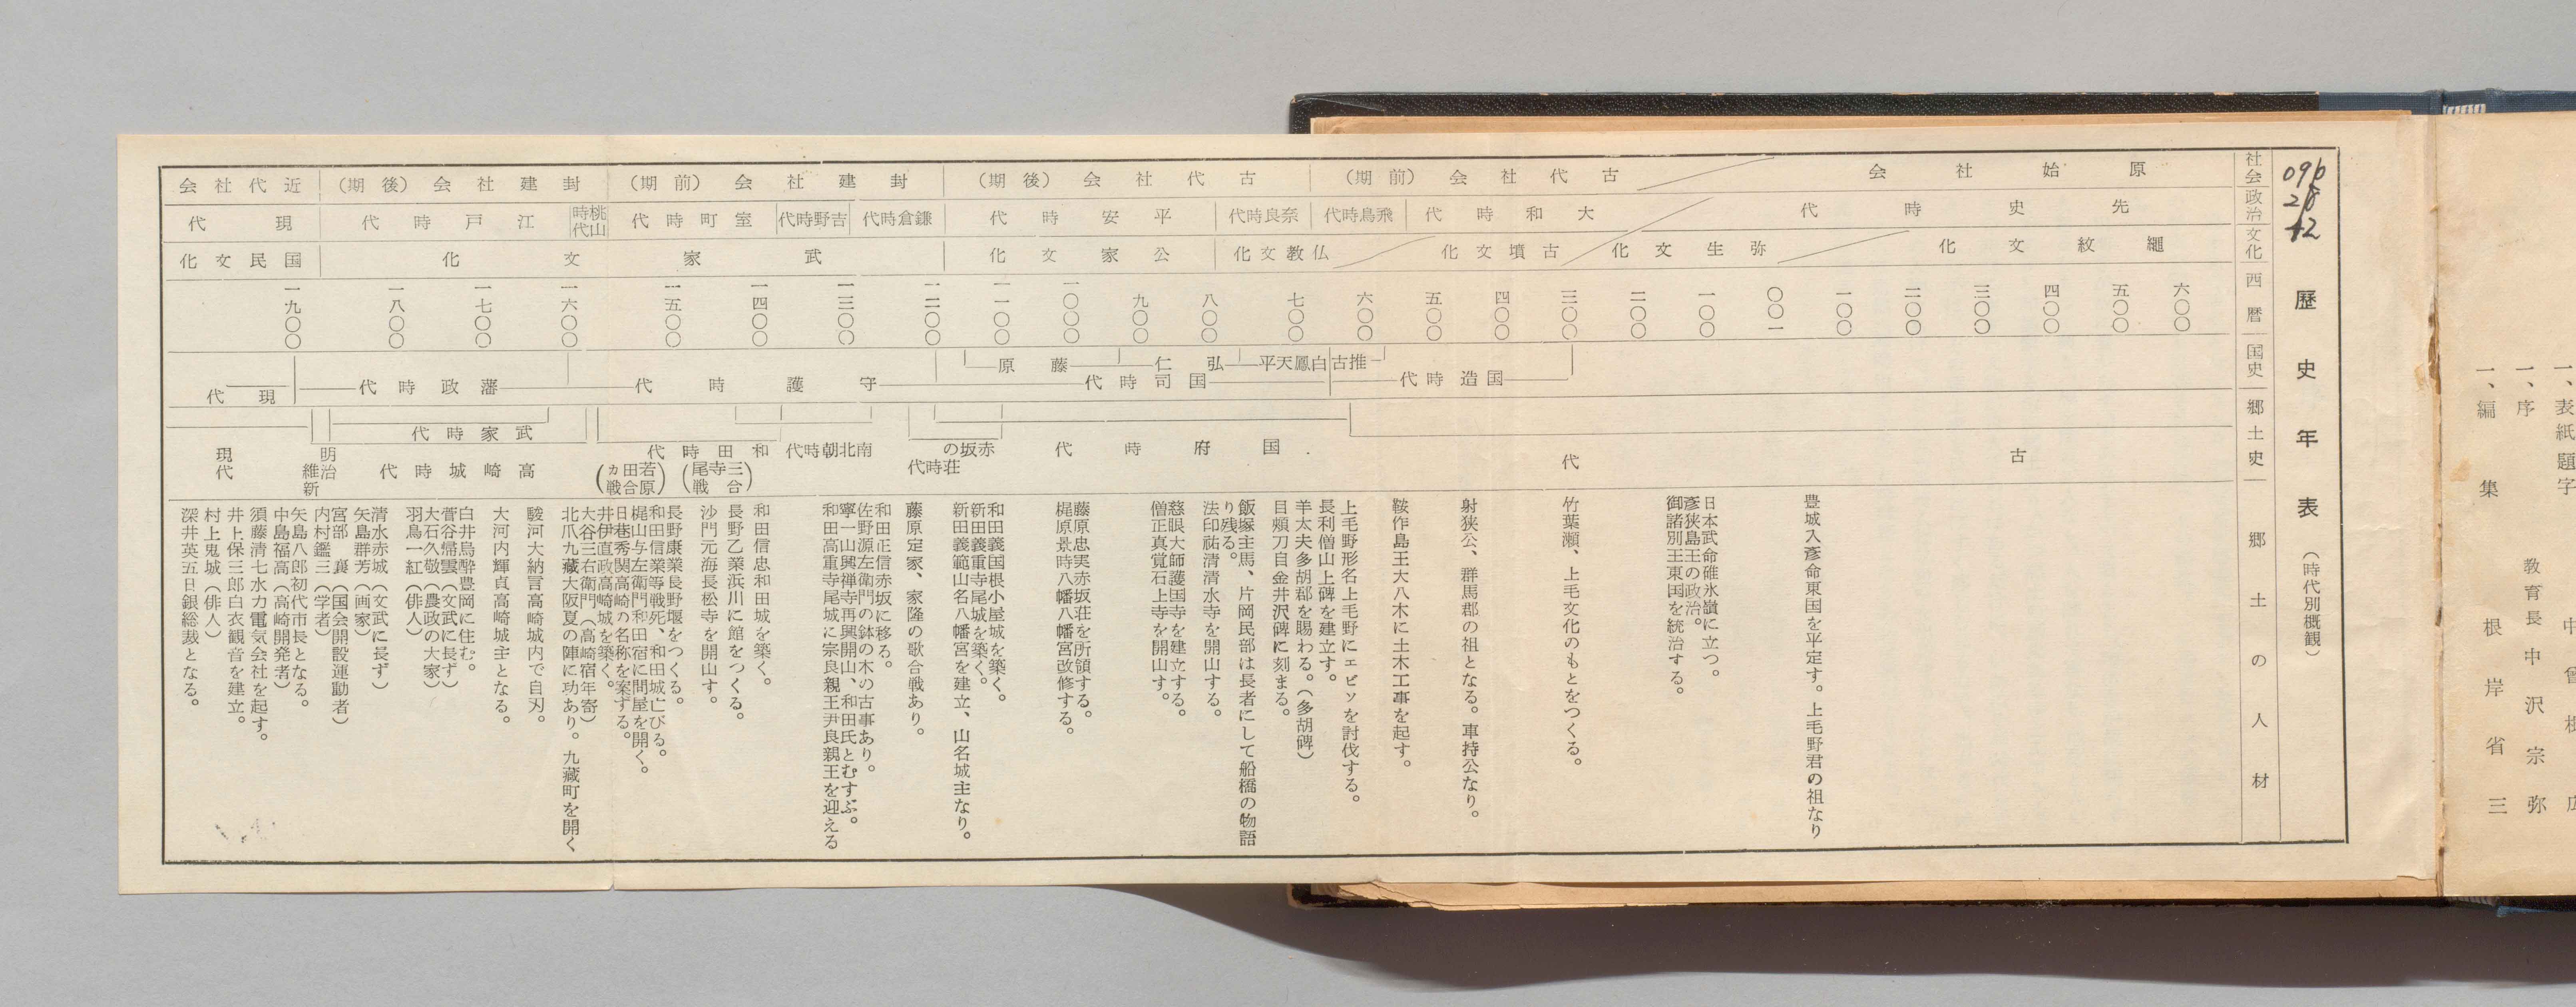 一、表紙題字
一、序 教育長 中沢宗弥
一、編集 根岸省三
096
28
12
歴史年表（時代別概観）
社会
政治
文化
西暦
国史
郷土史
郷土の人材
原始社会
古代社会（前期）
古代社会（後期）
封建社会（前期）
封建社会（後期）
近代社会
先史時代
大和時代
飛鳥時代
奈良時代
平安時代
鎌倉時代
吉野時代
室町時代
桃山時代
江戸時代
現代
繩紋文化
弥生文化
古墳文化
仏教文化
公家文化
武家文化
国民文化
六〇〇
五〇〇
四〇〇
三〇〇
二〇〇
一〇〇
〇〇一
一〇〇
二〇〇
三〇〇
四〇〇
五〇〇
六〇〇
七〇〇
八〇〇
九〇〇
一〇〇〇
一一〇〇
一二〇〇
一三〇〇
一四〇〇
一五〇〇
一六〇〇
一七〇〇
一八〇〇
一九〇〇
推古
白鳳天平
弘仁
藤原
国造時代
国司時代
守護時代
藩政時代
現代
古代
国府時代
赤坂の荘時代
南北朝時代
和田時代
（三寺尾合戦）
（若田ヵ原合戦）
武家時代
高崎城時代
明治維新
現代
豊城入彦命東国を平定す。上毛野君の祖なり
日本武命碓氷嶺に立つ。
彦狭島王の政治。
御諸別王東国を統治する。
竹葉瀬、上毛文化のもとをつくる。
射狭公、群馬郡の祖となる。車持公なり。
鞍作島王大八木に土木工事を起す。
上毛野形名上毛野にエビソを討伐する。
長利僧山上碑を建立す。
羊太夫多胡郡を賜わる。（多胡碑）
目頬刀自金井沢碑に刻まる。
飯塚主馬、片岡民部は長者にして船橋の物語
り残る。
法印祐清清水寺を開山する。
慈眼大師護国寺を建立する。
僧正真覚石上寺を開山す。
藤原忠実赤坂荘を所領する。
梶原景時八幡八幡宮改修する。
和田義国根小屋城を築く。
新田義重寺尾城を築く。
新田義範山名八幡宮を建立、山名城主なり。
藤原定家、家隆の歌合戦あり。
和田正信赤坂に移る。
佐野源左衛門の鉢の木の古事あり。
寧一山興禅寺再興開山、和田氏とむすぶ。
和田高重寺尾城に宗良親王尹良親王を迎える
和田信忠和田城を築く。
長野乙業浜川に館をつくる。
沙門元海長松寺を開山す。
長野康業長野堰をつくる。
和田信業等戦死、和田城亡びる。
梶山与左衛門和田宿に問屋を開く。
日巷秀関高崎の名称を案ずる。
井伊直政高崎城を築く。
大谷三右衛門（高崎宿年寄）
北爪九蔵大阪夏の陣に功あり。九蔵町を開く
駿河大納言高崎城内で自刃。
大河内輝貞高崎城主となる。
白井鳥酔豊岡に住む。
菅谷帰雲（文武に長ず）
大石久敬（農政の大家）
羽鳥一紅（俳人）
清水赤城（文武に長ず）
矢島群芳（画家）
宮部　襄（国会開設運動者）
内村鑑三（学者）
矢島八郎初代市長となる。
中島福高（高崎開発者）
須藤清七水力電気会社を起す。
井上保三郎白衣観音を建立。
村上鬼城（俳人）
深井英五日銀総裁となる。